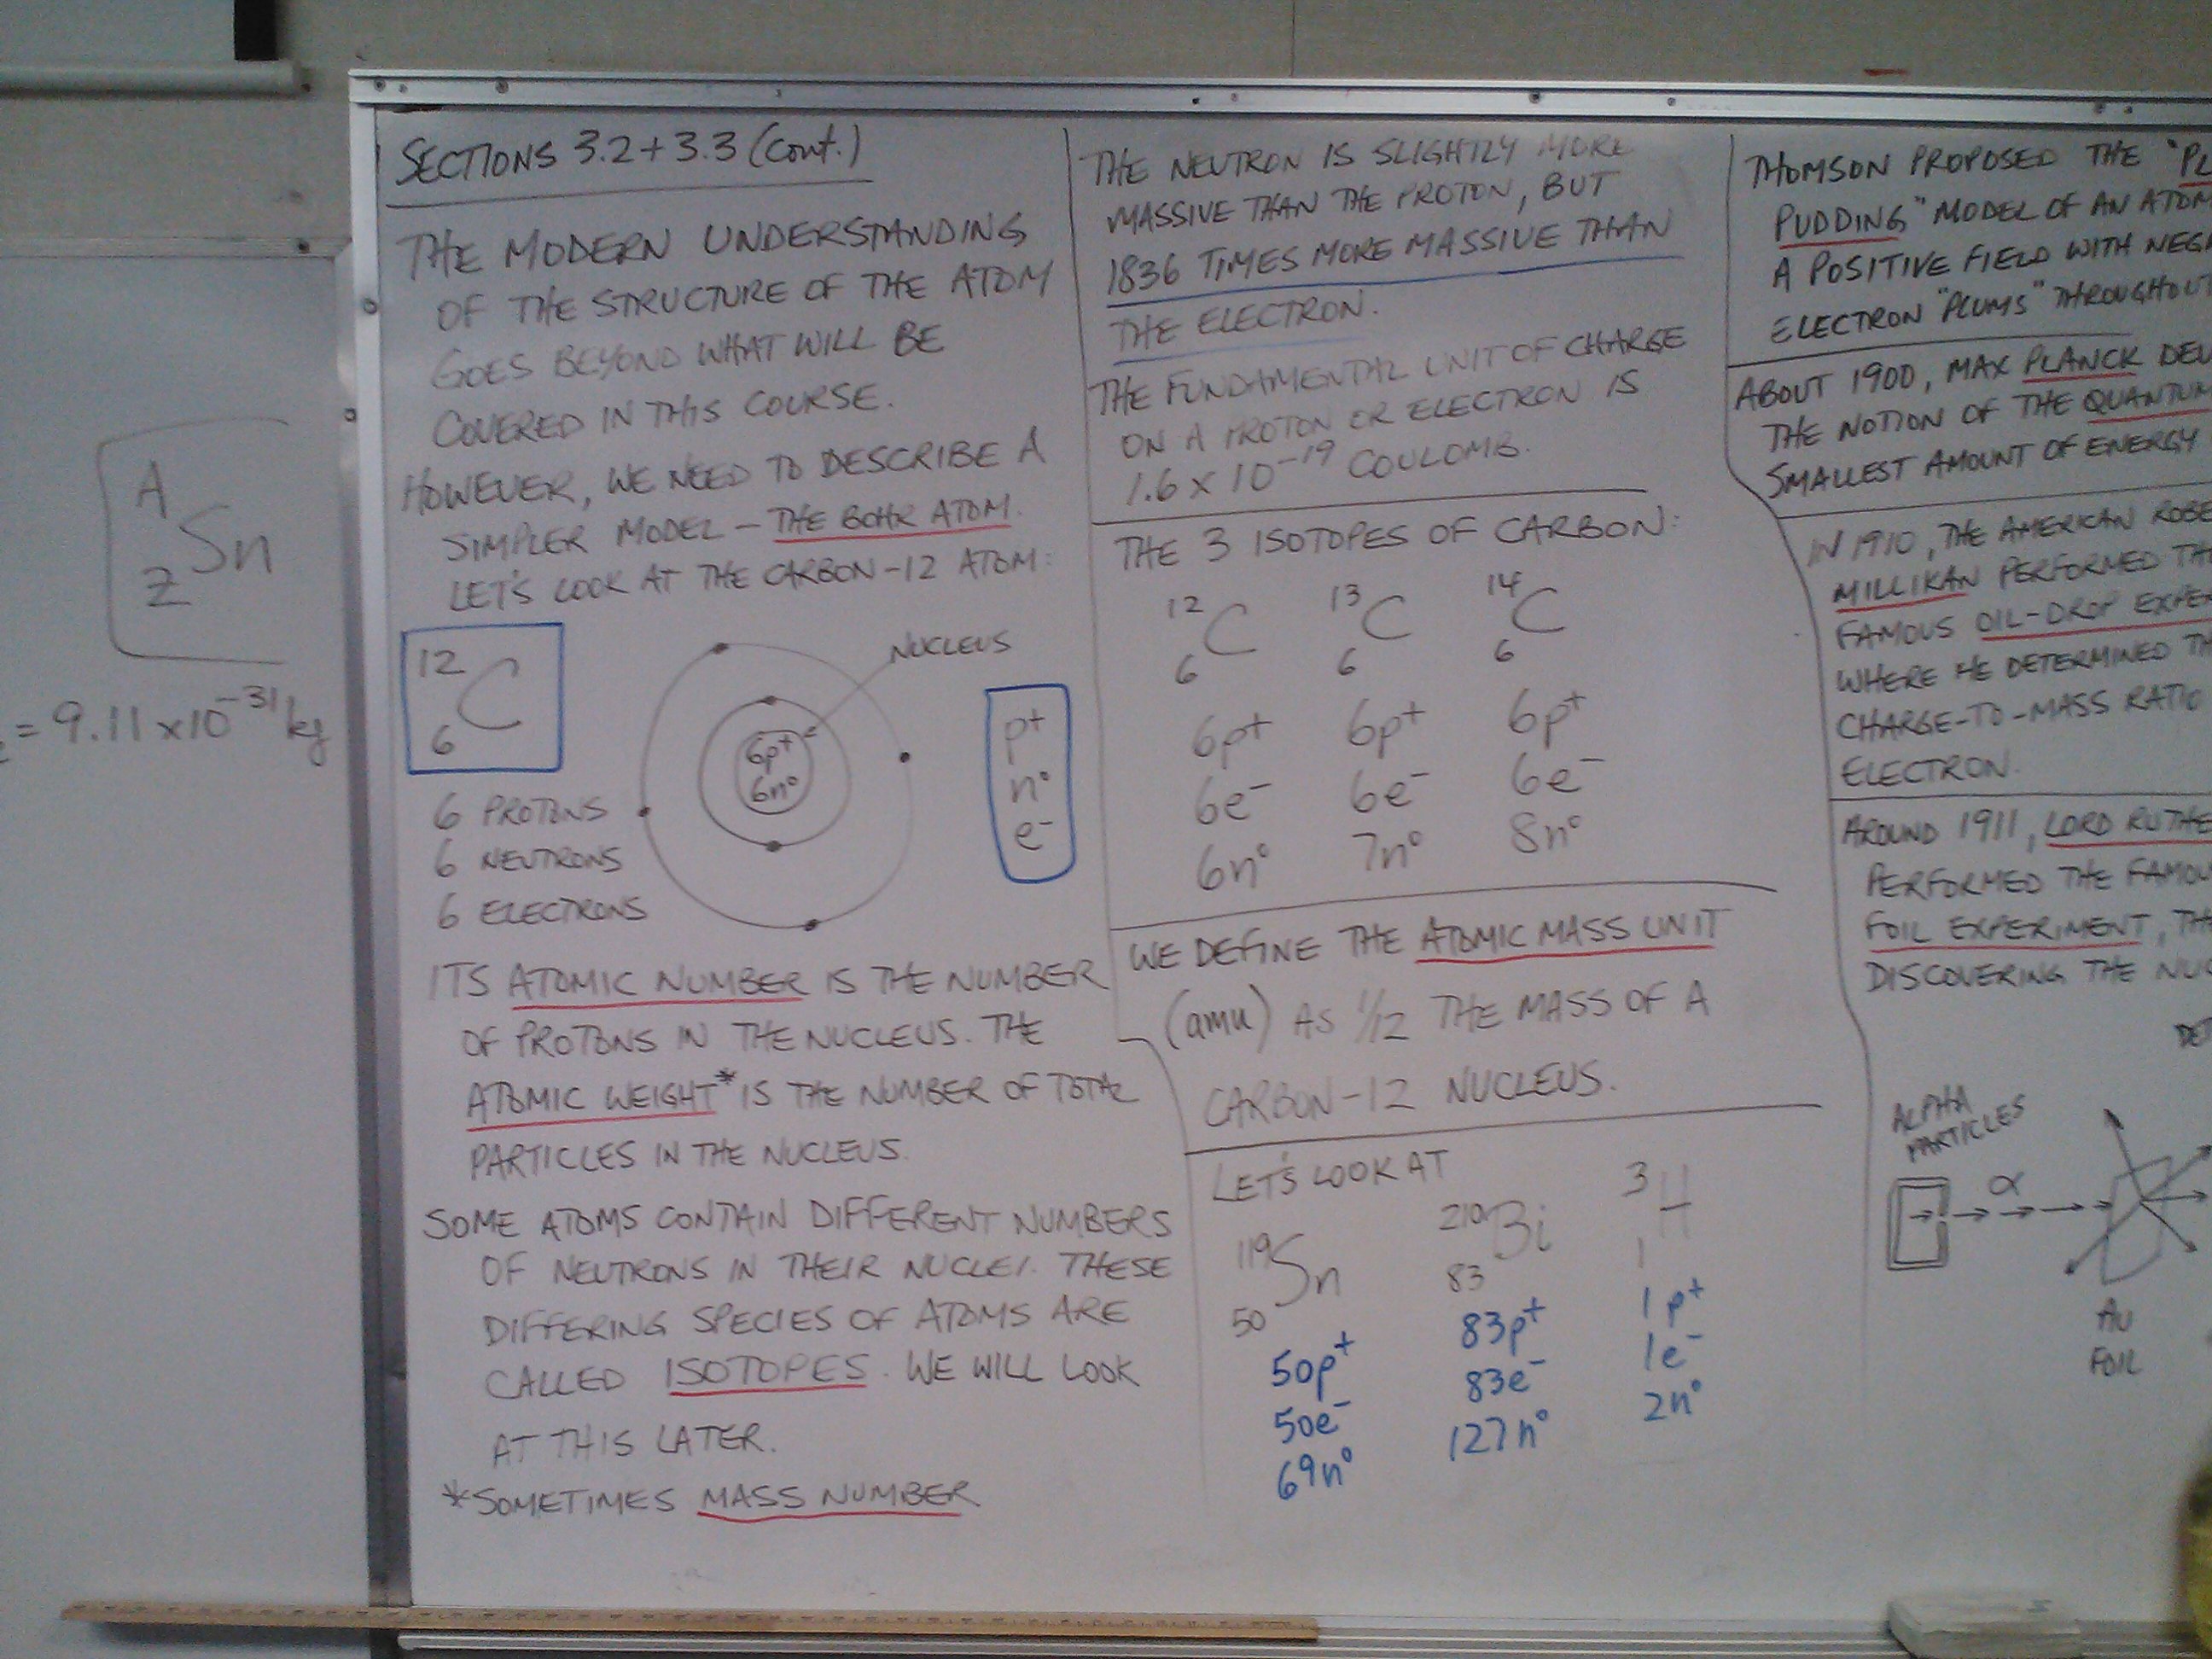 A
Sn
Z
= 9.11 x 10⁻³¹ kg
SECTIONS 3.2 + 3.3 (cont.)
THE MODERN UNDERSTANDING
OF THE STRUCTURE OF THE ATOM
GOES BEYOND WHAT WILL BE
COVERED IN THIS COURSE.
HOWEVER, WE NEED TO DESCRIBE A
SIMPLER MODEL – THE BOHR ATOM.
LET'S LOOK AT THE CARBON-12 ATOM:
12
C
6
6 PROTONS
6 NEUTRONS
6 ELECTRONS
NUCLEUS
6p⁺
6n⁰
p⁺
n⁰
e⁻
ITS ATOMIC NUMBER IS THE NUMBER
OF PROTONS IN THE NUCLEUS. THE
ATOMIC WEIGHT* IS THE NUMBER OF TOTAL
PARTICLES IN THE NUCLEUS.
SOME ATOMS CONTAIN DIFFERENT NUMBERS
OF NEUTRONS IN THEIR NUCLEI. THESE
DIFFERING SPECIES OF ATOMS ARE
CALLED ISOTOPES. WE WILL LOOK
AT THIS LATER.
*SOMETIMES MASS NUMBER
THE NEUTRON IS SLIGHTLY MORE
MASSIVE THAN THE PROTON, BUT
1836 TIMES MORE MASSIVE THAN
THE ELECTRON.
THE FUNDAMENTAL UNIT OF CHARGE
ON A PROTON OR ELECTRON IS
1.6 x 10⁻¹⁹ COULOMB.
THE 3 ISOTOPES OF CARBON:
12 13 14
C C C
6 6 6
6p⁺ 6p⁺ 6p⁺
6e⁻ 6e⁻ 6e⁻
6n⁰ 7n⁰ 8n⁰
WE DEFINE THE ATOMIC MASS UNIT
(amu) AS 1/12 THE MASS OF A
CARBON-12 NUCLEUS.
LET'S LOOK AT
119 210 3
Sn Bi H
50 83 1
50p⁺ 83p⁺ 1p⁺
50e⁻ 83e⁻ 1e⁻
69n⁰ 127n⁰ 2n⁰
THOMSON PROPOSED THE
PUDDING" MODEL OF AN ATOM
A POSITIVE FIELD WITH
ELECTRON "PLUMS" THROUGHOUT
ABOUT 1900, MAX PLANCK
THE NOTION OF THE QUANTUM
SMALLEST AMOUNT OF ENERGY
IN 1910, THE AMERICAN
MILLIKAN PERFORMED
FAMOUS OIL-DROP
WHERE HE DETERMINED
CHARGE-TO-MASS RATIO
ELECTRON.
AROUND 1911, LORD
PERFORMED THE
FOIL EXPERIMENT,
DISCOVERING THE
ALPHA
PARTICLES
α
Au
FOIL